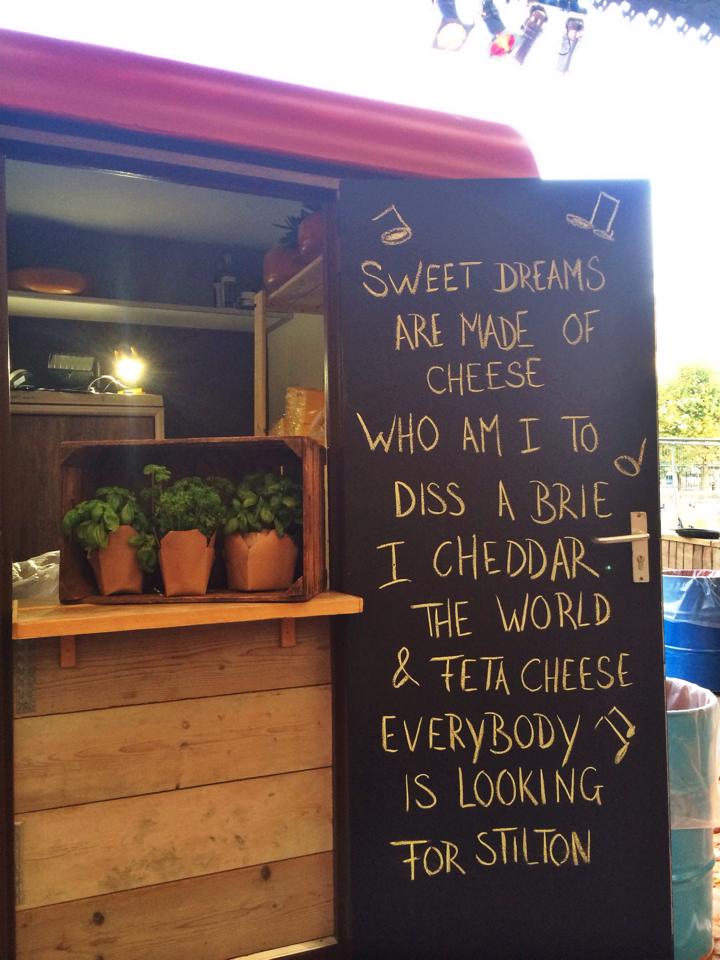 SWEET DREAMS
ARE MADE OF
CHEESE
WHO AM I TO
DISS A BRIE
I CHEDDAR
THE WORLD
& FETA CHEESE
EVERYBODY
IS LOOKING
FOR STILTON